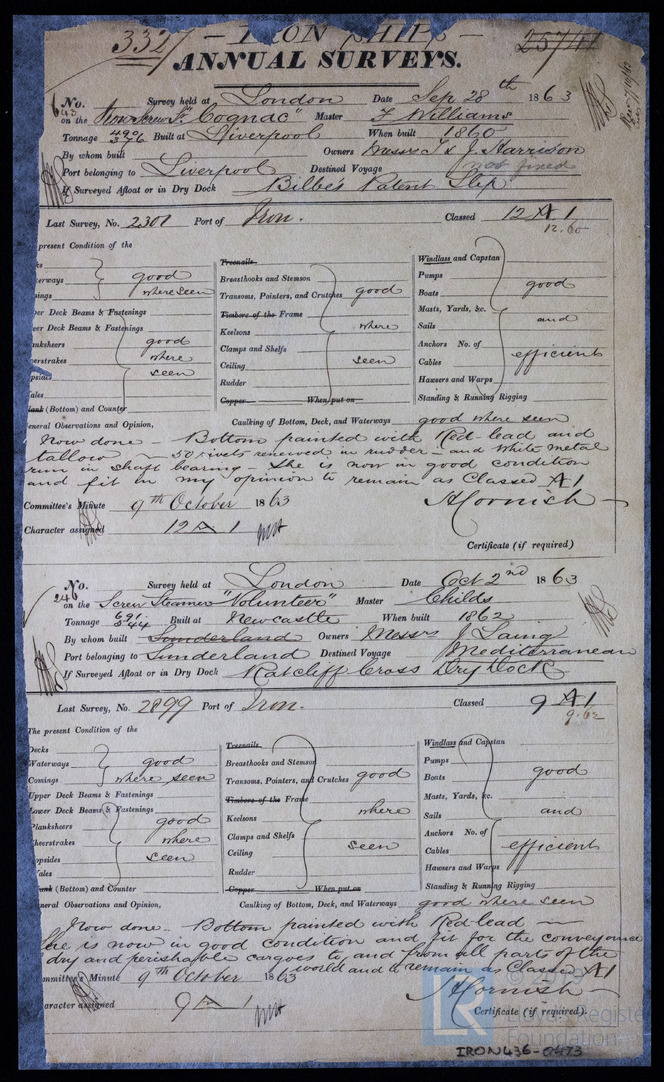 3327 — IRON SHIPS — 25741
ANNUAL SURVEYS.
No. 643 Survey held at London Date Sep 28th 1863
on the Iron Screw Sr "Cognac" Master F Williams
Tonnage 490 376 Built at Liverpool When built 1860
By whom built Owners Messrs T & J Harrison
Port belonging to Liverpool Destined Voyage not fixed
If Surveyed Afloat or in Dry Dock Bilbe's Patent Slip
Last Survey, No. 2301 Port of Iron. Classed 12 A 1
12.60
present Condition of the
Treenails Windlass and Capstan
erways good Breasthooks and Stemson Pumps
mings where seen Transoms, Pointers, and Crutches good Boats good
per Deck Beams & Fastenings Timbers of the Frame Masts, Yards, &c.
wer Deck Beams & Fastenings Keelsons where Sails and
anksheers good Clamps and Shelfs Anchors No. of
erstrakes where Ceiling seen Cables efficient
opsides seen Rudder Hawsers and Warps
ales Copper When put on Standing & Running Rigging
lank (Bottom) and Counter
eneral Observations and Opinion, Caulking of Bottom, Deck, and Waterways good where seen
Now done — Bottom painted with Red-lead and
tallow — 50 rivets renewed in rudder — and White metal
run in shaft bearing — She is now in good condition
and fit in my opinion to remain as Classed A1
Committee's Minute 9th October 1863 J Cornish
Character assigned 12 A 1
Certificate (if required)
No. 246 Survey held at London Date Oct 2nd 1863
on the Screw Steamer "Volunteer" Master Childs
Tonnage 691 544 Built at Newcastle When built 1862
By whom built Sunderland Owners Messrs J Laing
Port belonging to Sunderland Destined Voyage Mediterranean
If Surveyed Afloat or in Dry Dock Ratcliff Cross Dry Dock
Last Survey, No. 2899 Port of Iron. Classed 9 A 1
9.62
The present Condition of the
Decks Treenails Windlass and Capstan
Waterways good Breasthooks and Stemson Pumps
Comings where seen Transoms, Pointers, and Crutches good Boats good
Upper Deck Beams & Fastenings Timbers of the Frame Masts, Yards, &c.
Lower Deck Beams & Fastenings Keelsons where Sails and
Planksheers good Clamps and Shelfs Anchors No. of
heerstrakes where Ceiling seen Cables efficient
opsides seen Rudder Hawsers and Warps
ales Copper When put on Standing & Running Rigging
ank (Bottom) and Counter
neral Observations and Opinion, Caulking of Bottom, Deck, and Waterways good where seen
Now done — Bottom painted with Red-lead —
She is now in good condition and fit for the conveyance
dry and perishable cargoes to and from all parts of the
world and to remain as Classed A1
mmittee's Minute 9th October 1863 J Cornish
aracter assigned 9 A 1
Certificate (if required).
LR Lloyd's Register Foundation
IRON436-0473